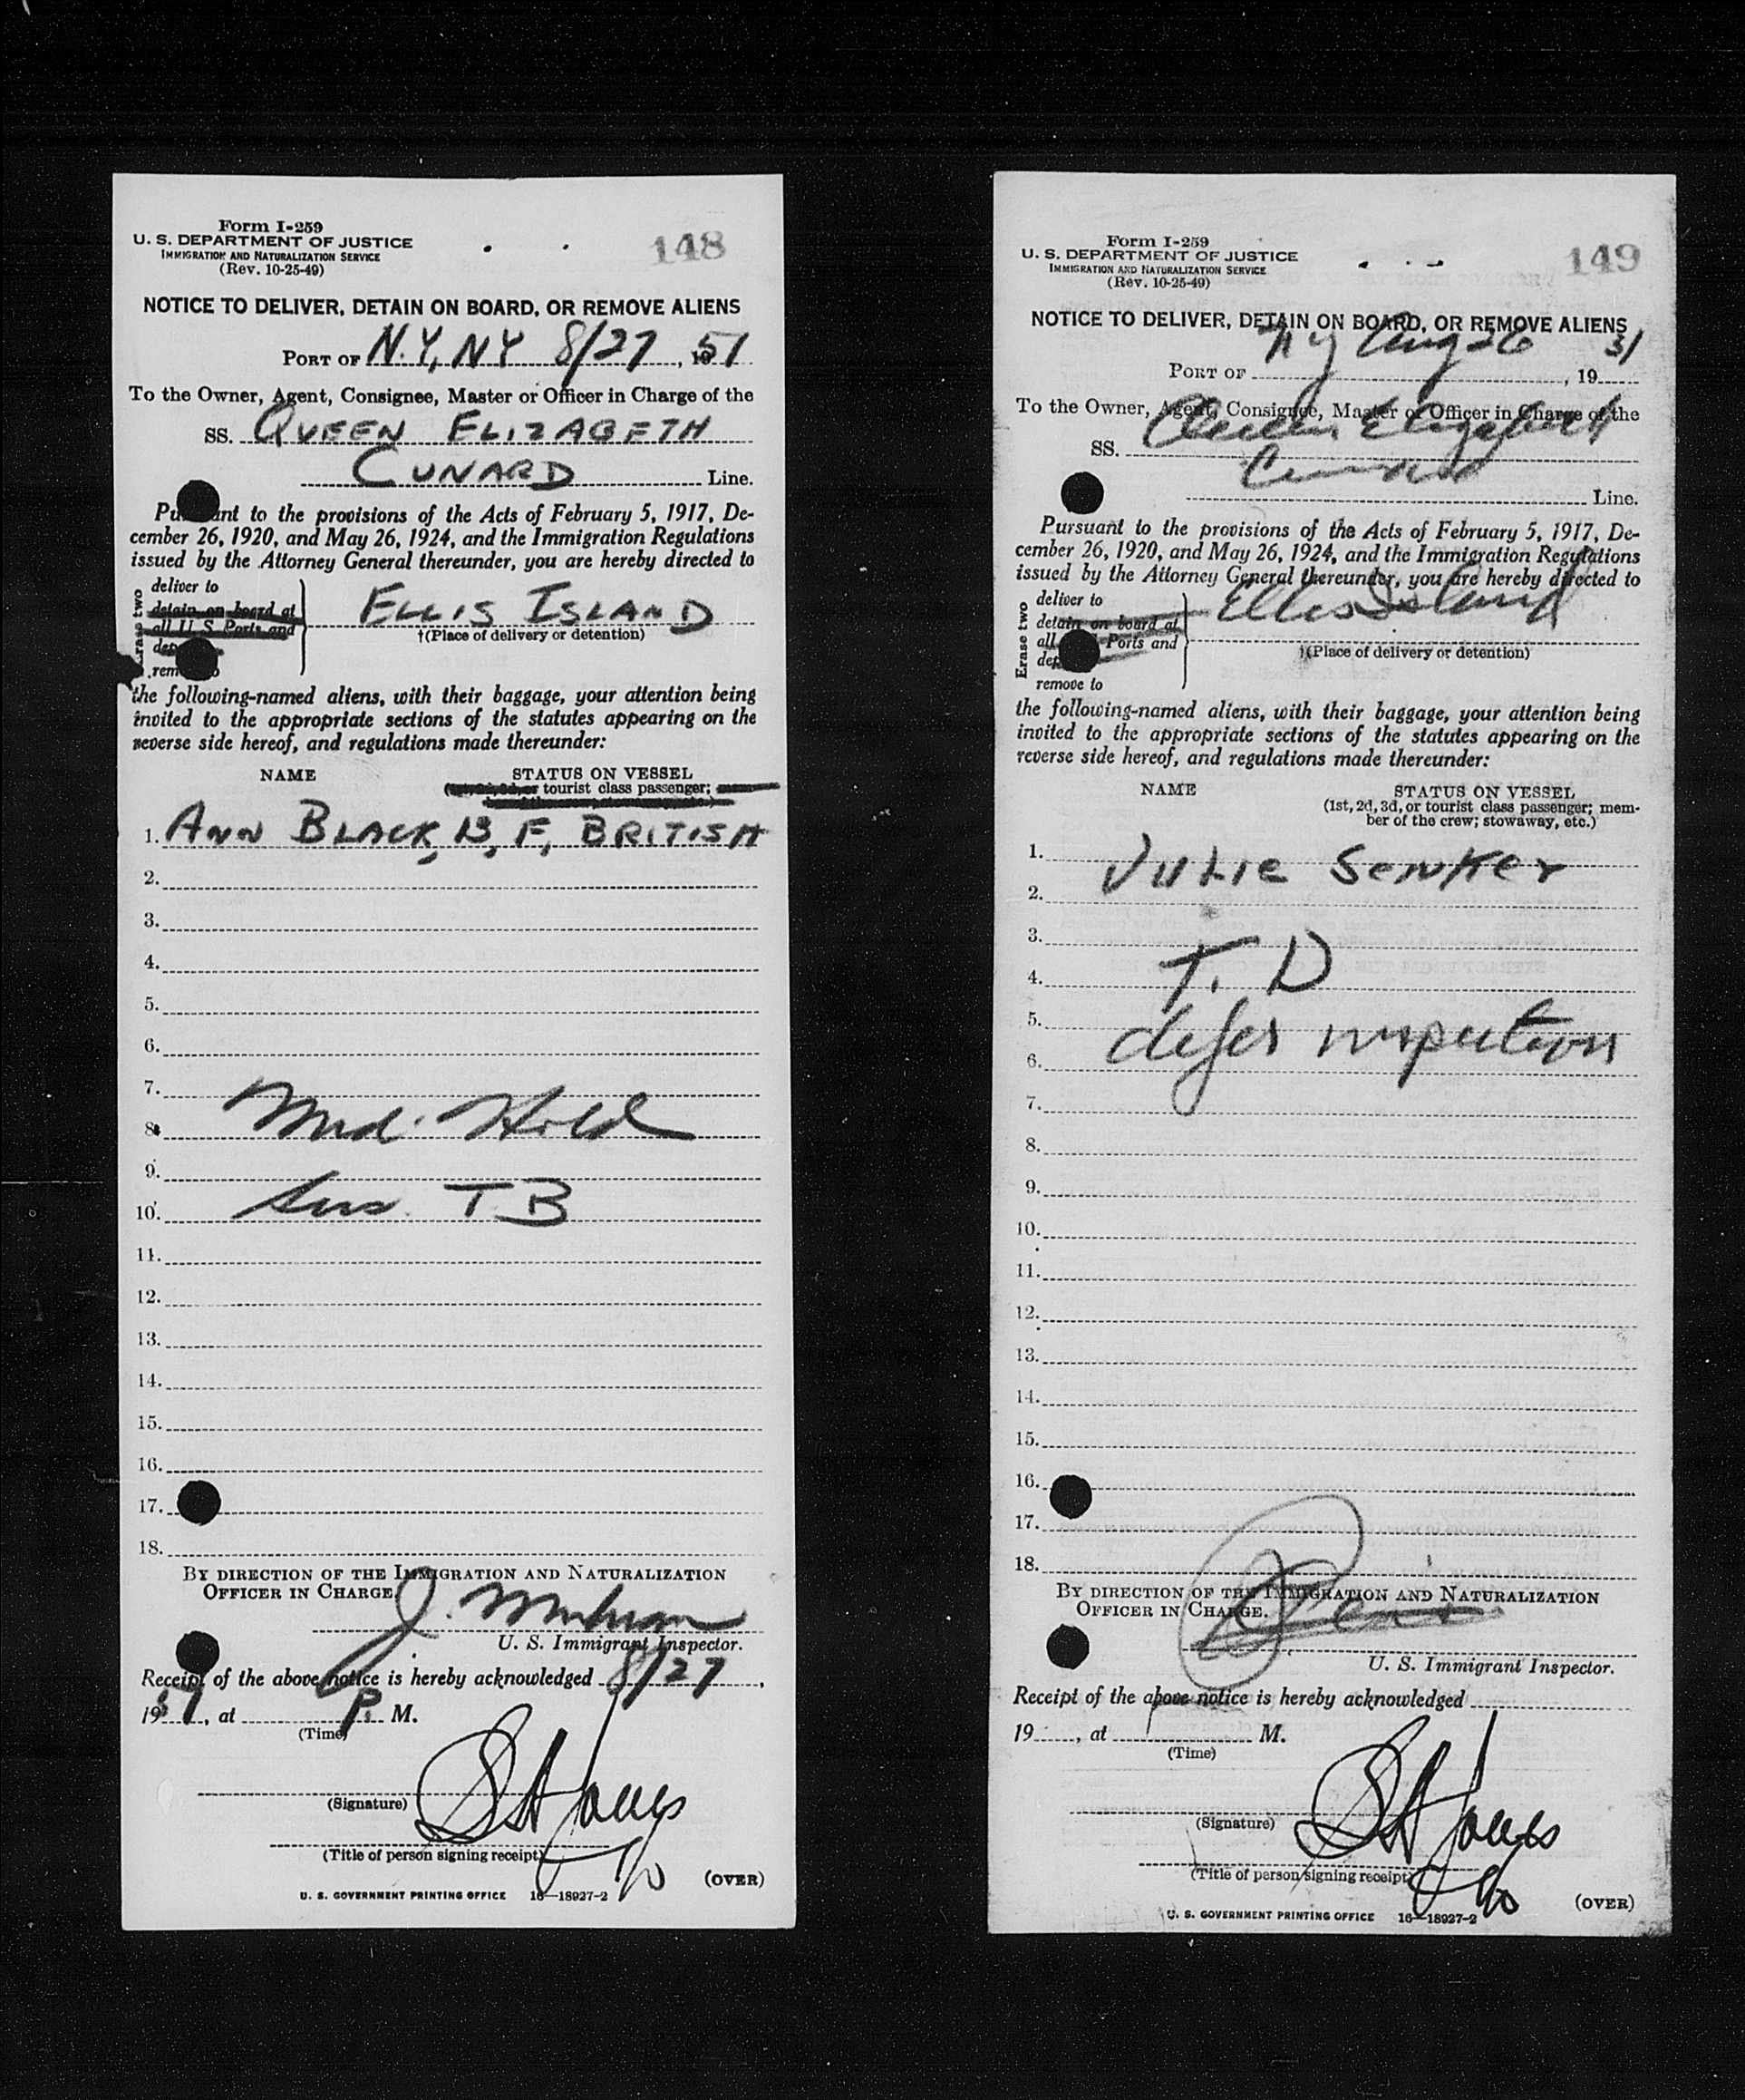 Form I-259
U. S. DEPARTMENT OF JUSTICE
IMMIGRATION AND NATURALIZATION SERVICE
(Rev. 10-25-49)
148
NOTICE TO DELIVER, DETAIN ON BOARD, OR REMOVE ALIENS
PORT OF N.Y, NY 8/27, 1951
To the Owner, Agent, Consignee, Master or Officer in Charge of the
SS. QUEEN ELIZABETH
CUNARD Line.
Pursuant to the provisions of the Acts of February 5, 1917, De-
cember 26, 1920, and May 26, 1924, and the Immigration Regulations
issued by the Attorney General thereunder, you are hereby directed to
Erase two
deliver to
detain on board at
all U S Ports and
dep
remove to
ELLIS ISLAND
†(Place of delivery or detention)
the following-named aliens, with their baggage, your attention being
invited to the appropriate sections of the statutes appearing on the
reverse side hereof, and regulations made thereunder:
NAME STATUS ON VESSEL
tourist class passenger;
1. ANN BLACK, 13, F, BRITISH
2.
3.
4.
5.
6.
7.
8. Med. Hold
9.
10. Sus. T.B
11.
12.
13.
14.
15.
16.
17.
18.
BY DIRECTION OF THE IMMIGRATION AND NATURALIZATION
OFFICER IN CHARGE
J.
U. S. Immigrant Inspector.
Receipt of the above notice is hereby acknowledged 8/27,
1951, at P. M.
(Time)
(Signature)
(Title of person signing receipt)
(OVER)
U. S. GOVERNMENT PRINTING OFFICE 16—18927-2
Form I-259
U. S. DEPARTMENT OF JUSTICE
IMMIGRATION AND NATURALIZATION SERVICE
(Rev. 10-25-49)
149
NOTICE TO DELIVER, DETAIN ON BOARD, OR REMOVE ALIENS
PORT OF NY Aug 26, 19 51
To the Owner, Agent, Consignee, Master or Officer in Charge of the
SS. Queen Elizabeth
Cunard Line.
Pursuant to the provisions of the Acts of February 5, 1917, De-
cember 26, 1920, and May 26, 1924, and the Immigration Regulations
issued by the Attorney General thereunder, you are hereby directed to
Erase two
deliver to
detain on board at
all Ports and
dep
remove to
Ellis Island
†(Place of delivery or detention)
the following-named aliens, with their baggage, your attention being
invited to the appropriate sections of the statutes appearing on the
reverse side hereof, and regulations made thereunder:
NAME STATUS ON VESSEL
(1st, 2d, 3d, or tourist class passenger; mem-
ber of the crew; stowaway, etc.)
1. Julie Senker
2.
3.
4. T. D
5.
6. defer inspection
7.
8.
9.
10.
11.
12.
13.
14.
15.
16.
17.
18.
BY DIRECTION OF THE IMMIGRATION AND NATURALIZATION
OFFICER IN CHARGE.
U. S. Immigrant Inspector.
Receipt of the above notice is hereby acknowledged
19, at M.
(Time)
(Signature)
(Title of person signing receipt)
(OVER)
U. S. GOVERNMENT PRINTING OFFICE 16—18927-2